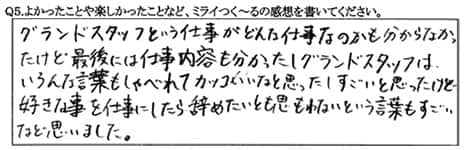 Q5.よかったことや楽しかったことなど、ミライつく～るの感想を書いてください。
グランドスタッフという仕事がどんな仕事なのかも分からなかっ
たけど最後には仕事内容も分かったしグランドスタッフは、
いろんな言葉もしゃべれてカッコいいなと思ったしすごいと思ったけど
好きな事を仕事にしたら辞めたいとも思わないという言葉もすごい
なと思いました。